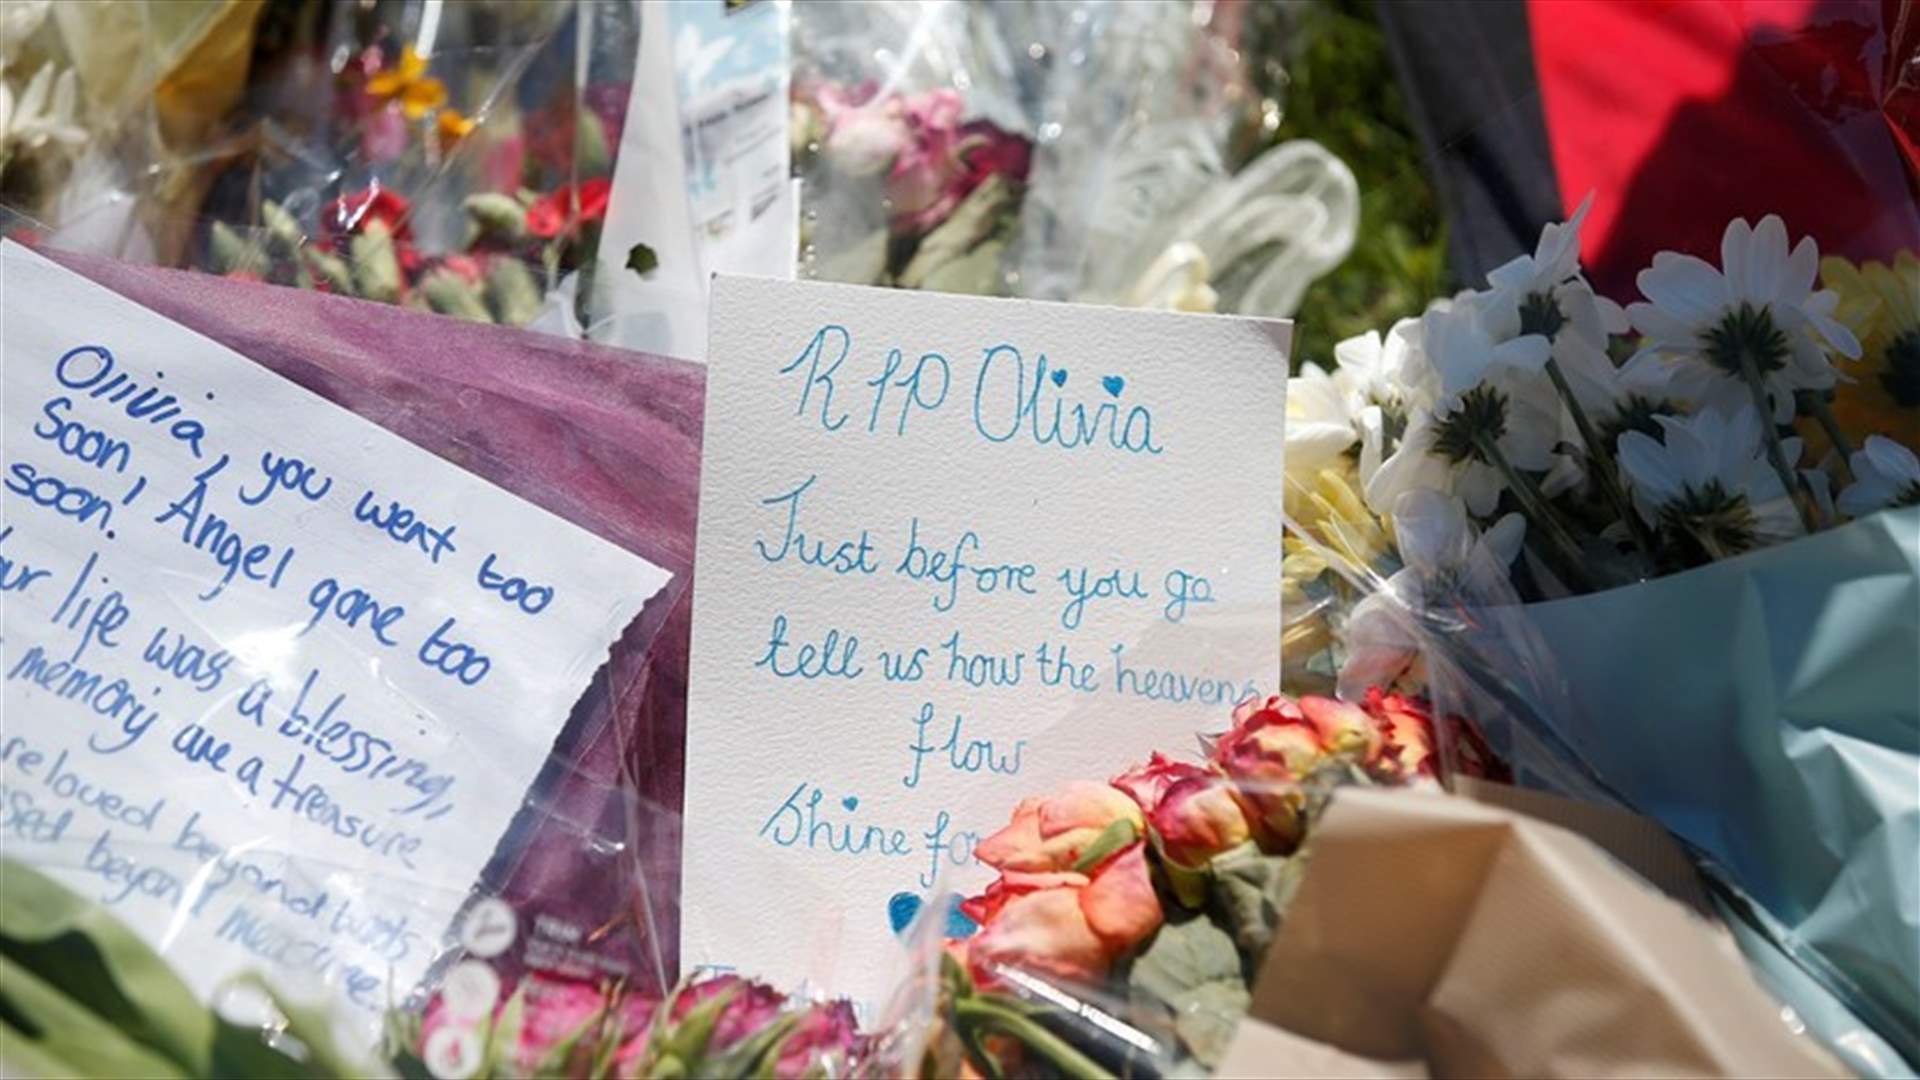 Olivia, you went too
Soon, Angel gone too
soon.
life was a blessing,
memory are a treasure
loved beyond words
beyond measure.
RIP Olivia
Just before you go
tell us how the heavens
flow
Shine